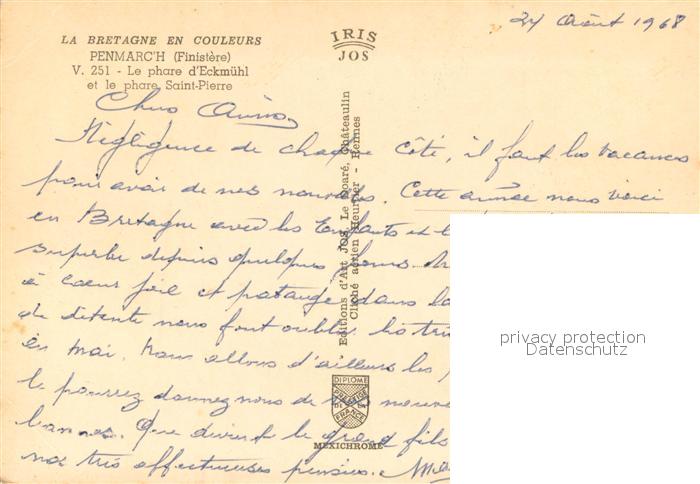 24 Août 1968
LA BRETAGNE EN COULEURS
PENMARC'H (Finistère)
V. 251 - Le phare d'Eckmühl
et le phare Saint-Pierre
IRIS
JOS
Chers Amis
Négligence de chaque côté, il faut les vacances
pour avoir de nos nouvelles. Cette année nous voici
en Bretagne avec les Enfants et l
superbe depuis quelques jours
à coeur joie et patauge dans la
de détente nous font oublier les tris
en mai. Nous allons d'ailleurs les
le pourrez donnez nous de vos nouve
bonnes. Que devient le grand fils
nos très affectueuses pensées.
Editions d'Art JOS, Le Doaré, Châteaulin
Cliché aérien Heurtier - Rennes
DIPLOME
PRESTIGE
DE LA
FRANCE
MEXICHROME
privacy protection
Datenschutz